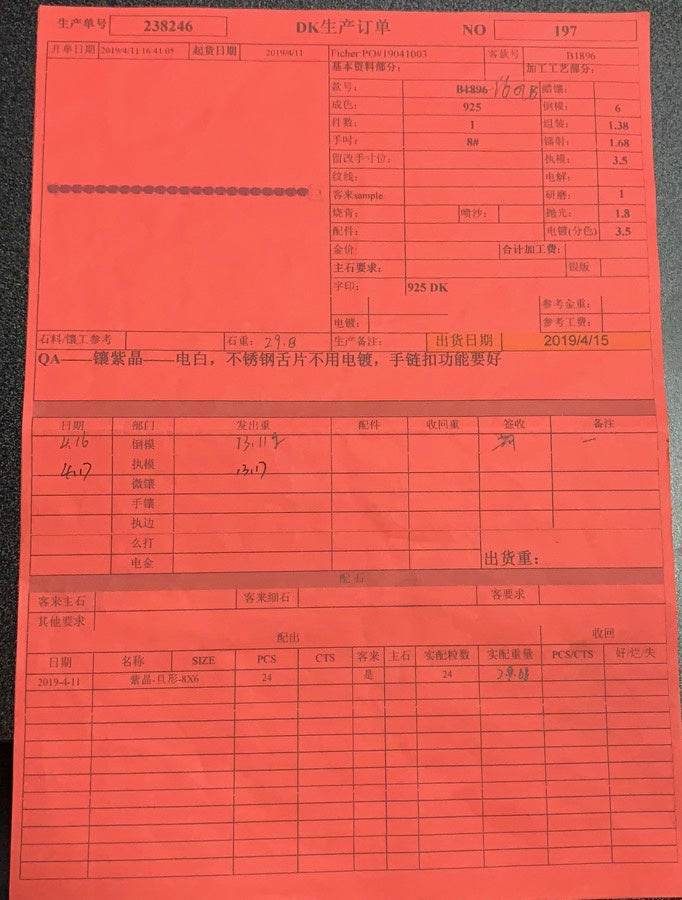 生产单号 238246 DK生产订单 NO 197
开单日期 2019/4/11 16:41:05 起货日期 2019/4/11 Ficher PO#19041003 客款号 B1896
基本资料部分: 加工工艺部分:
款号: B1896 蜡镶:
成色: 925 倒模: 6
件数: 1 组装: 1.38
手寸: 8# 镭射: 1.68
留改手寸位: 执模: 3.5
纹线: 电解:
客来sample 研磨: 1
烧青: 喷沙: 抛光: 1.8
配件: 电镀(分色) 3.5
金价: 合计加工费:
主石要求: 银版
字印: 925 DK
参考金重:
电镀: 参考工费:
石料/镶工参考 石重: 29.8 生产备注: 出货日期 2019/4/15
QA——镶紫晶——电白，不锈钢舌片不用电镀，手链扣功能要好
日期 部门 发出重 配件 收回重 签收 备注
4.16 倒模 13.11
4.17 执模 13.17
微镶
手镶
执边
么打
电金 出货重:
配石
客来主石 客来细石 客要求
其他要求
配出 收回
日期 名称 SIZE PCS CTS 客来 主石 实配粒数 实配重量 PCS/CTS 好/烂/失
2019-4-11 紫晶-旦形-8X6 24 是 24